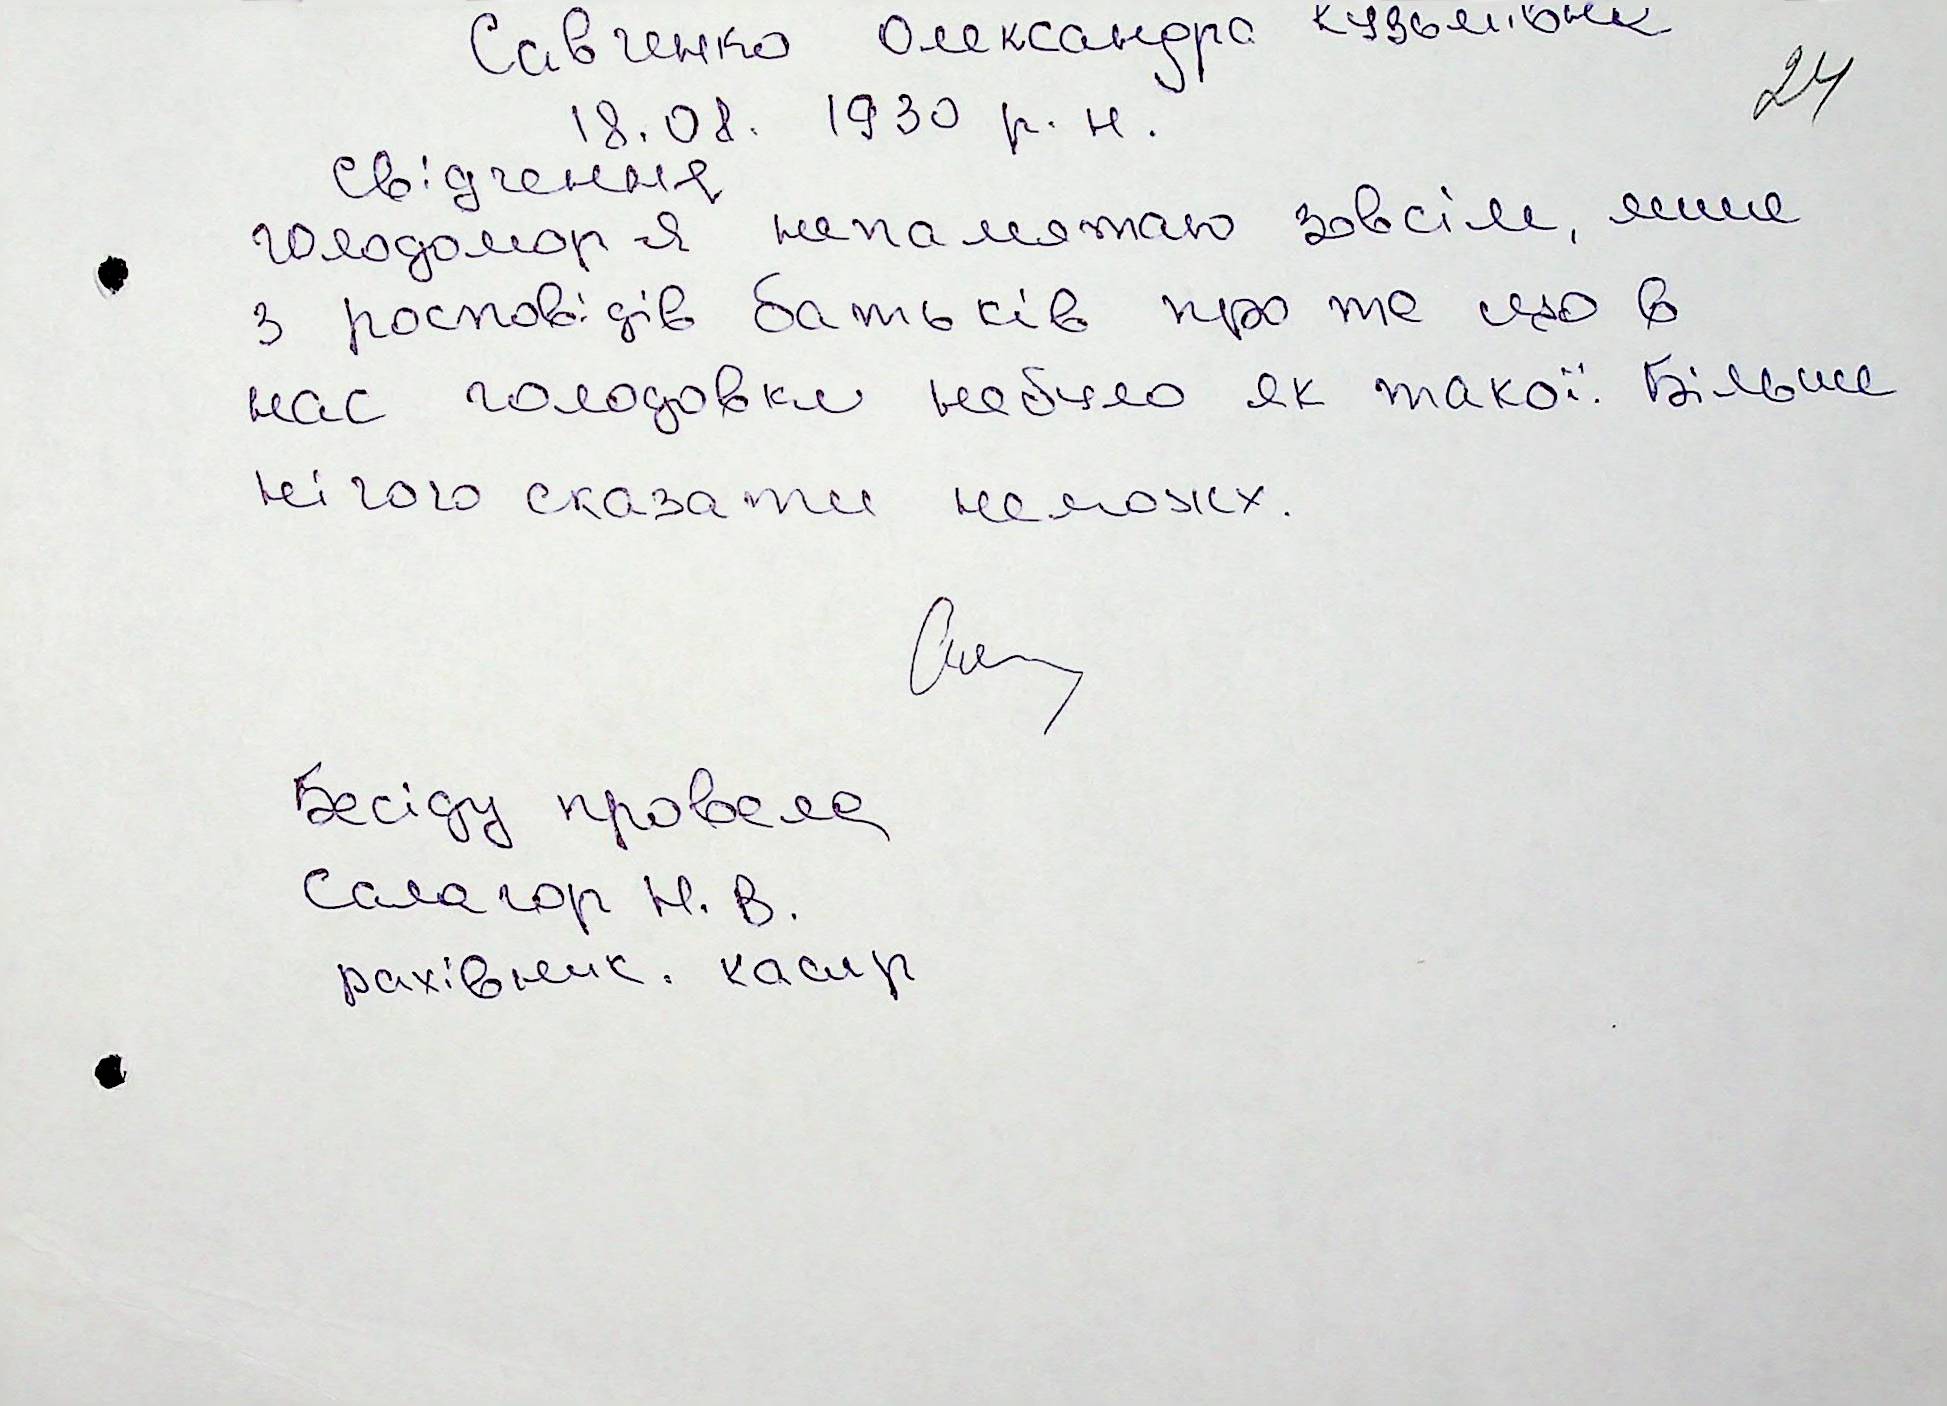 Савченко Олександра Кузьмівнк
24
18.08. 1930 р. н.
Свідчення
голодомор я непамятаю зовсім, лише
з росповідів батьків про те що в
нас голодовки небуло як такої. Більше
нічого сказати неможу.
Бесіду провела
Салагор Н. В.
рахівник. касир